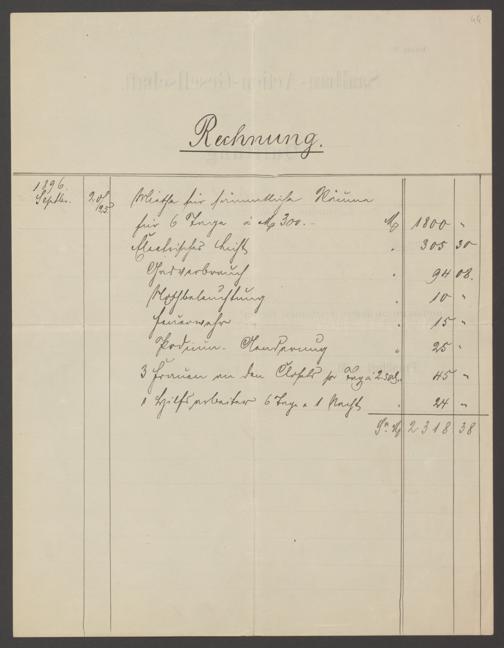 44
Rechnung.
1896.
Septbr. 20/25 Miethe für sämmtliche Räume
für 6 Tage à M 300.- M 1800 "
Electrisches Licht " 305 30
Gasverbrauch " 94 08.
Nothbeleuchtung " 10 "
Feuerwehr " 15 "
Podium-Aenderung " 25 "
3 Frauen an den Closets pr Tag à 2.50 " 45 "
1 Hilfsarbeiter 6 Tage & 1 Nacht " 24 "
Sa M 2318 38